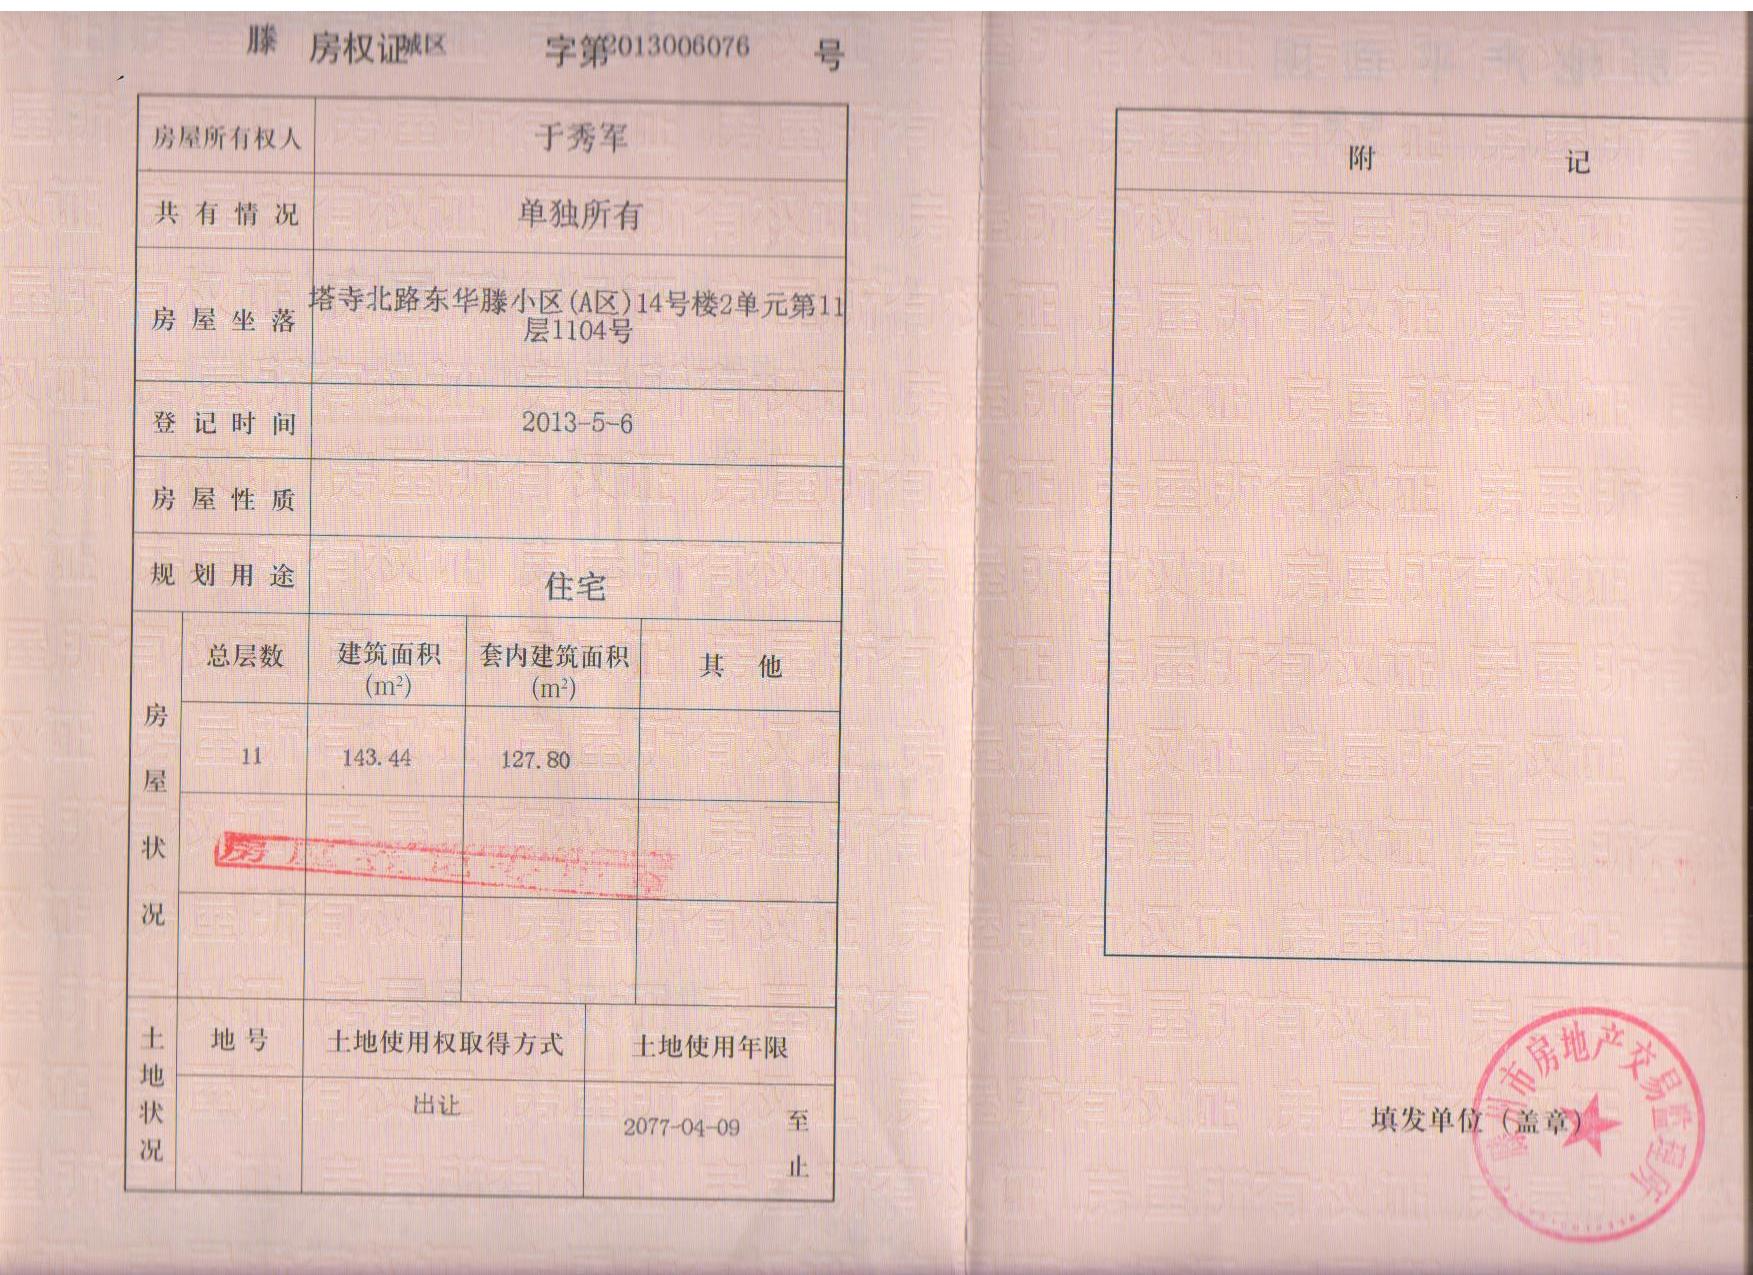 滕 房权证城区 字第2013006076 号
房屋所有权人 于秀军
共有情况 单独所有
房屋坐落 塔寺北路东华滕小区(A区)14号楼2单元第11
层1104号
登记时间 2013-5-6
房屋性质
规划用途 住宅
房屋状况
总层数 建筑面积 套内建筑面积 其他
(m²) (m²)
11 143.44 127.80
土地状况
地号 土地使用权取得方式 土地使用年限
出让 2077-04-09 至
止
附记
填发单位(盖章)
滕州市房地产交易监理所